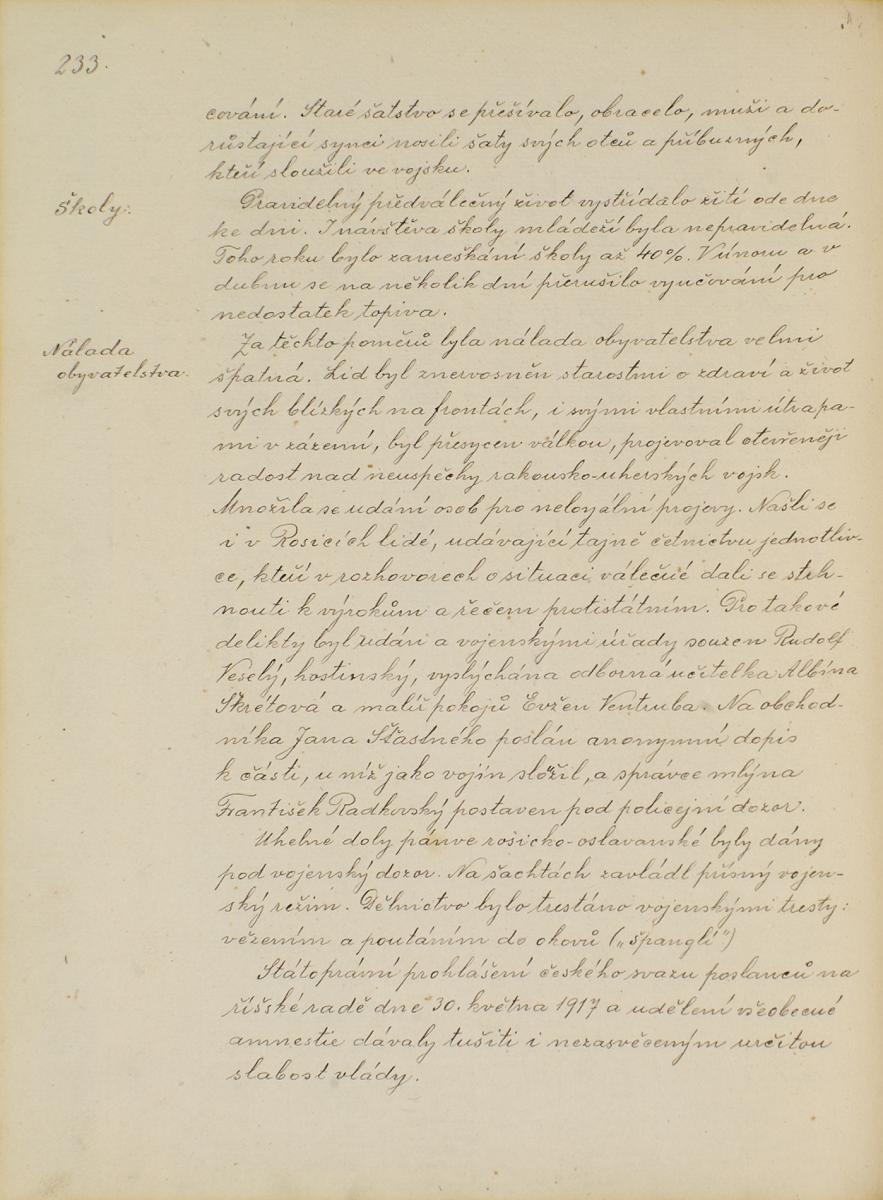 233.
cování. Staré šatstvo se přešívalo, obracelo, muži a do-
růstající synci nosili šaty svých otců a příbuzných,
kteří sloužili ve vojsku.
Školy.
Pravidelný předválečný život vystřídalo žití ode dne
ke dni. I návštěva školy mládeží byla nepravidelná.
Toho roku bylo zameškání školy až 40%. V únoru a v
dubnu se na několik dní přerušilo vyučování pro
nedostatek topiva.
Nálada
obyvatelstva.
Za těchto poměrů byla nálada obyvatelstva velmi
špatná. Lid byl znervosněn starostmi o zdraví a život
svých blízkých na frontách, i svými vlastními útrapa-
mi v zázemí, byl přesycen válkou, projevoval otevřeněji
radost nad neuspěchy rakousko-uherských vojsk.
Množila se udání osob pro neloyální projevy. Našli se
i v Rosicích lidé, udávající tajně četnictvu jednotliv-
ce, kteří v rozhovorech o situaci válečné dali se strh-
nouti k výrokům a řečem protistátním. Pro takové
delikty byl udán a vojenskými úřady souzen Rudolf
Veselý, hostinský, vyslýchána odborná učitelka Albína
Skrétová a malíř pokojů Evžen Ventruba. Na obchod-
níka Jana Šťastného poslán anonymní dopis
k části, u níž jako vojín sloužil, a správce mlýna
František Radkovský postaven pod policejní dozor.
Uhelné doly pánve rosicko-oslavanské byly dány
pod vojenský dozor. Na šachtách zavládl přísný vojen-
ský režim. Dělnictvo bylo trestáno vojenskými tresty:
vězením a poutáním do okovů („španglí")
Státoprávní prohlášení českého svazu poslanců na
říšské radě dne 30. května 1917 a udělení všeobecné
amnestie dávaly tušiti i nezasvěceným určitou
slabost vlády.